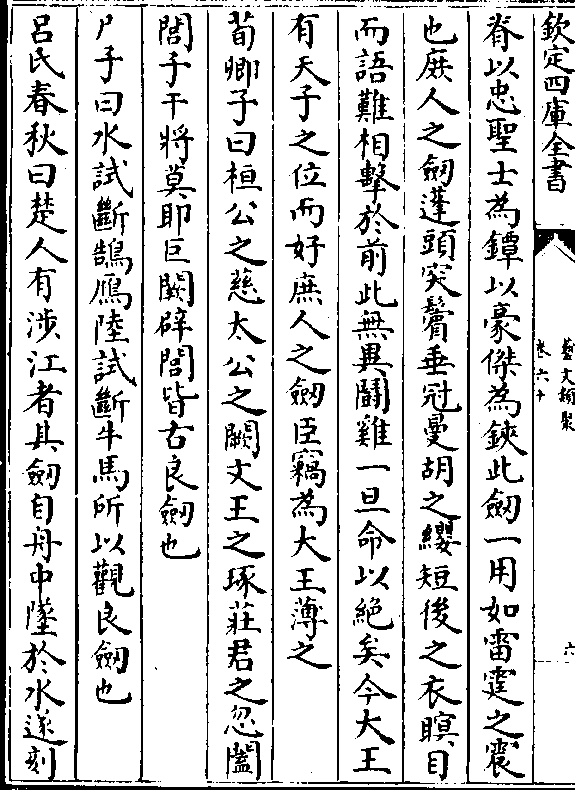 欽定四庫全書
藝文類聚
卷六十
六
脊以忠聖士為鐔以豪傑為鋏此劔一用如雷霆之震
也庶人之劔蓬頭突鬢垂冠曼胡之纓短後之衣瞑目
而語難相擊於前此無異鬬雞一旦命以絶矣今大王
有天子之位而好庶人之劔臣竊為大王薄之
荀卿子曰桓公之慈太公之闕文王之琢莊君之忽闔
閭于干將莫耶巨闕辟閭皆古良劔也
尸子曰水試斷鵠鴈陸試斷牛馬所以觀良劔也
呂氏春秋曰楚人有涉江者其劔自舟中墜於水遂刻